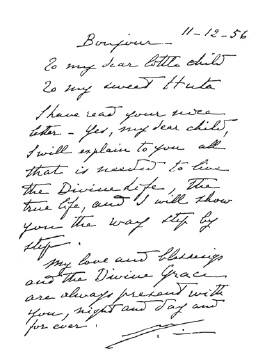 11-12-56
Bonjour -
To my dear little child
To my sweet Huta
I have read your nice
letter - Yes, my dear child,
I will explain to you all
that is needed to live
the Divine Life, the
true life, and I will show
you the way step by
step.
My love and blessings
and the Divine Grace
are always present with
you, night and day and
for ever.